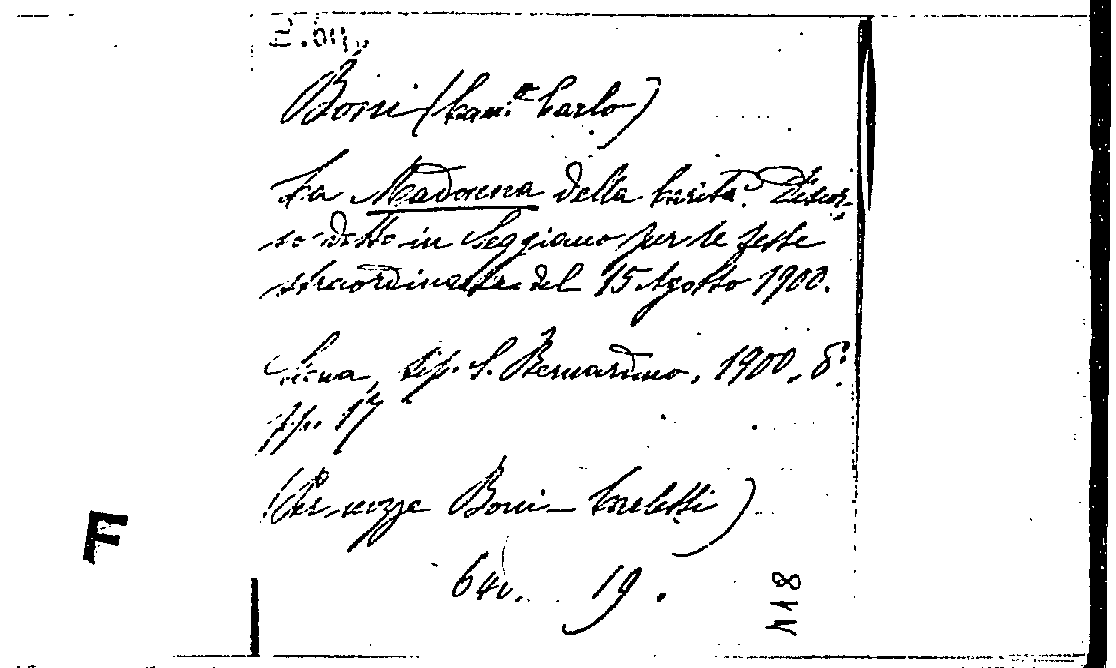 Boni (Can.co Carlo)
La Madonna della Carità. Discor-
so detto in Seggiano per le feste
straordinarie del 15 Agosto 1900.
Siena, tip. S. Bernardino, 1900, 8°.
pp. 17
(Per nozze Boni-
19.
118
F